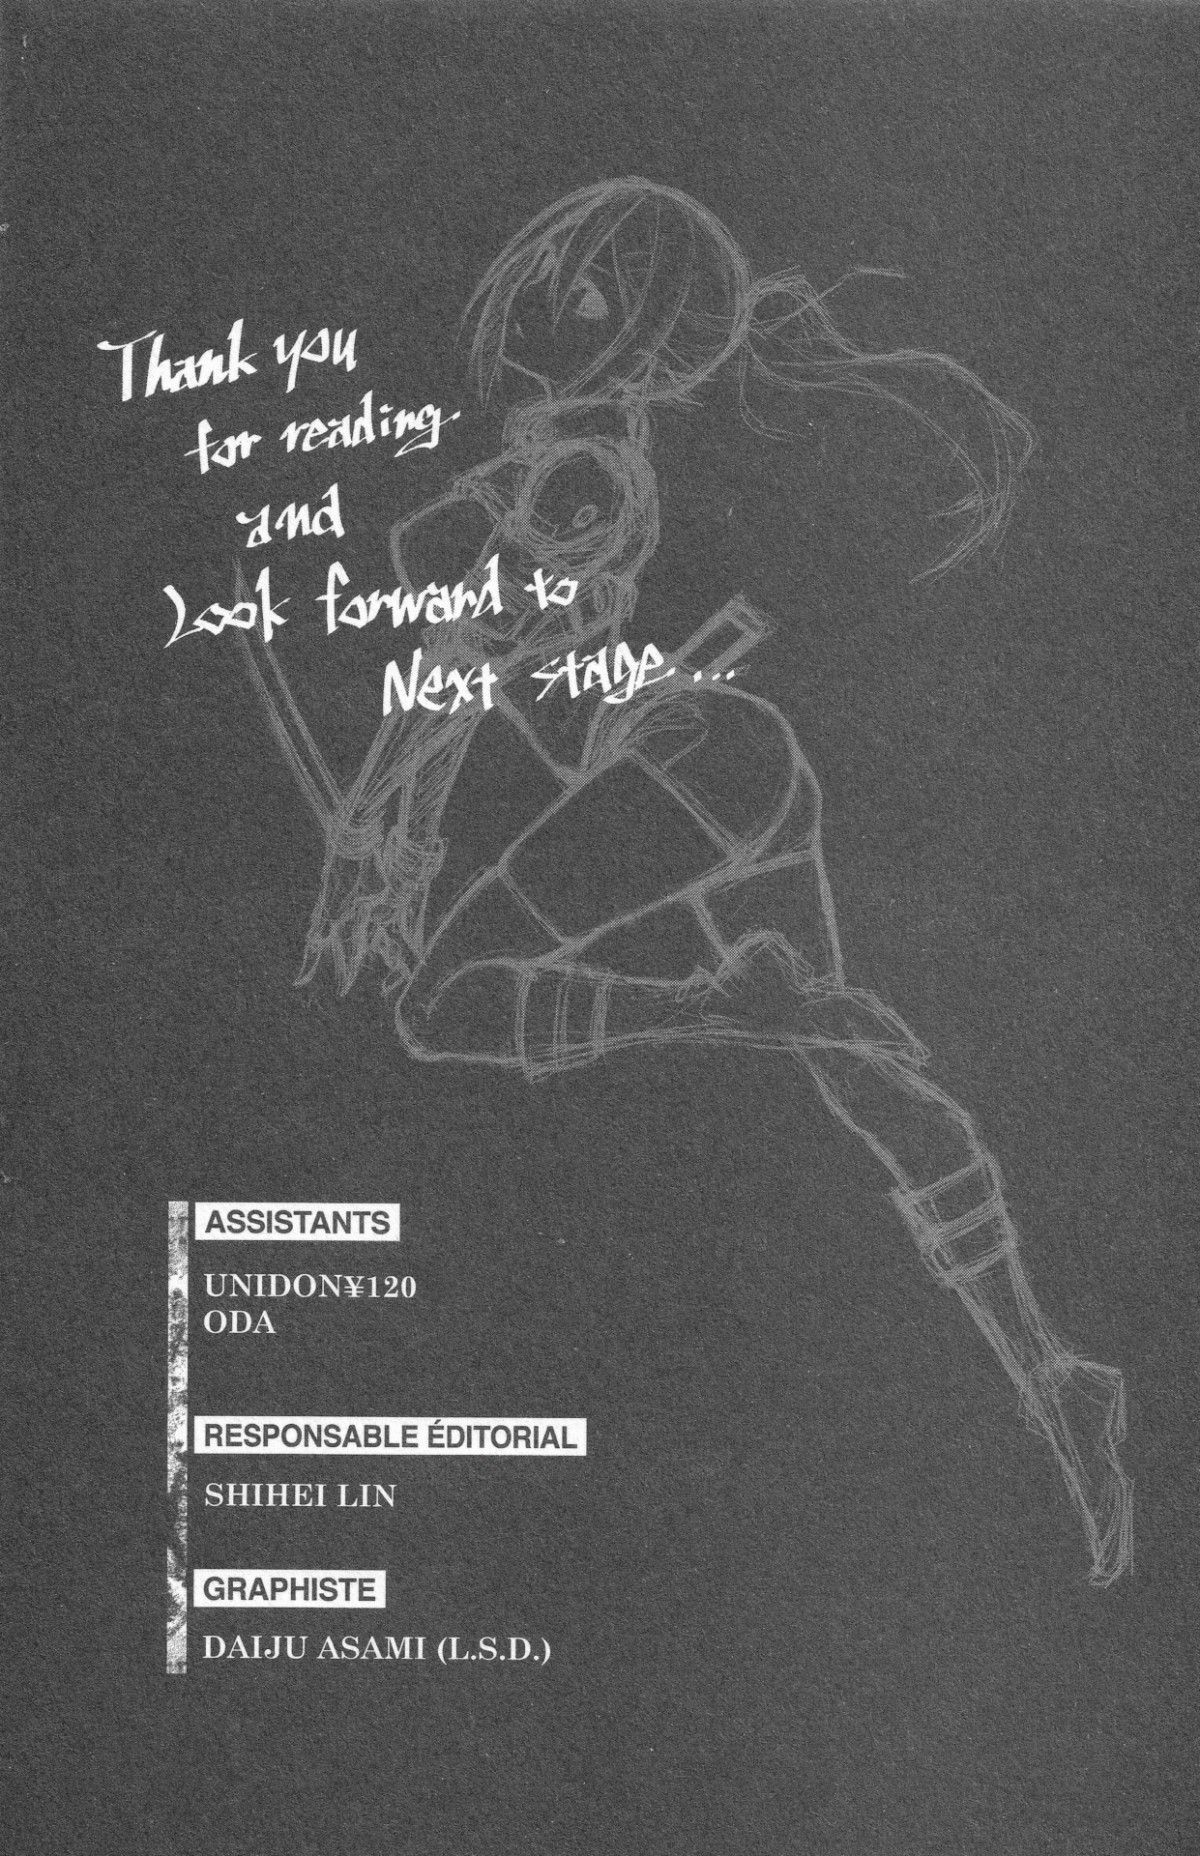 Thank you
for reading.
and
Look forward to
Next stage....
ASSISTANTS
UNIDON¥120
ODA
RESPONSABLE ÉDITORIAL
SHIHEI LIN
GRAPHISTE
DAIJU ASAMI (L.S.D.)